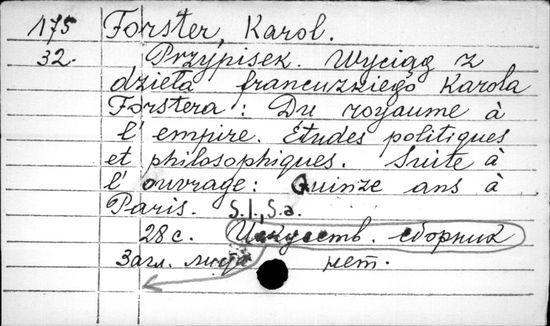 175 Forster, Karol.
32. Przypisek. Wyciąg z
dzieła francuzkiego Karola
Forstera: Du royaume à
l'empire. Etudes politiques
et philosophiques. Suite à
l'ouvrage: Quinze ans à
Paris. S.l., S.a.
28 с. Искусств. сборник
Загл. листа нет.